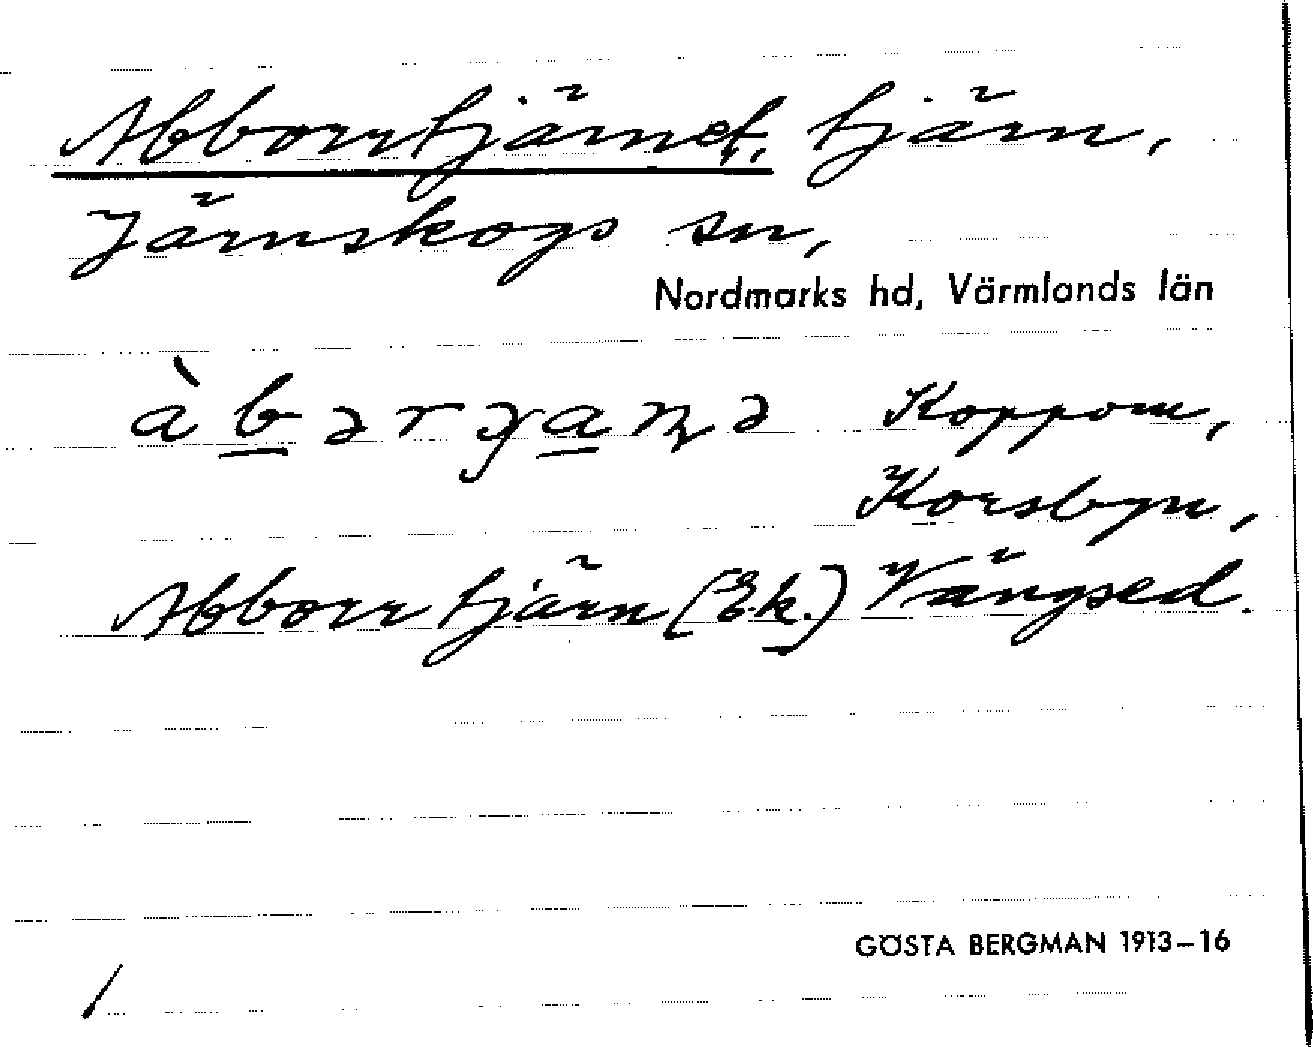 Abborrtjärnet, tjärn,
Järnskogs sn,
Nordmarks hd, Värmlands län
Koppom,
Korsbyn,
Abborrtjärn (Ek.) Vängsed.
GÖSTA BERGMAN 1913–16